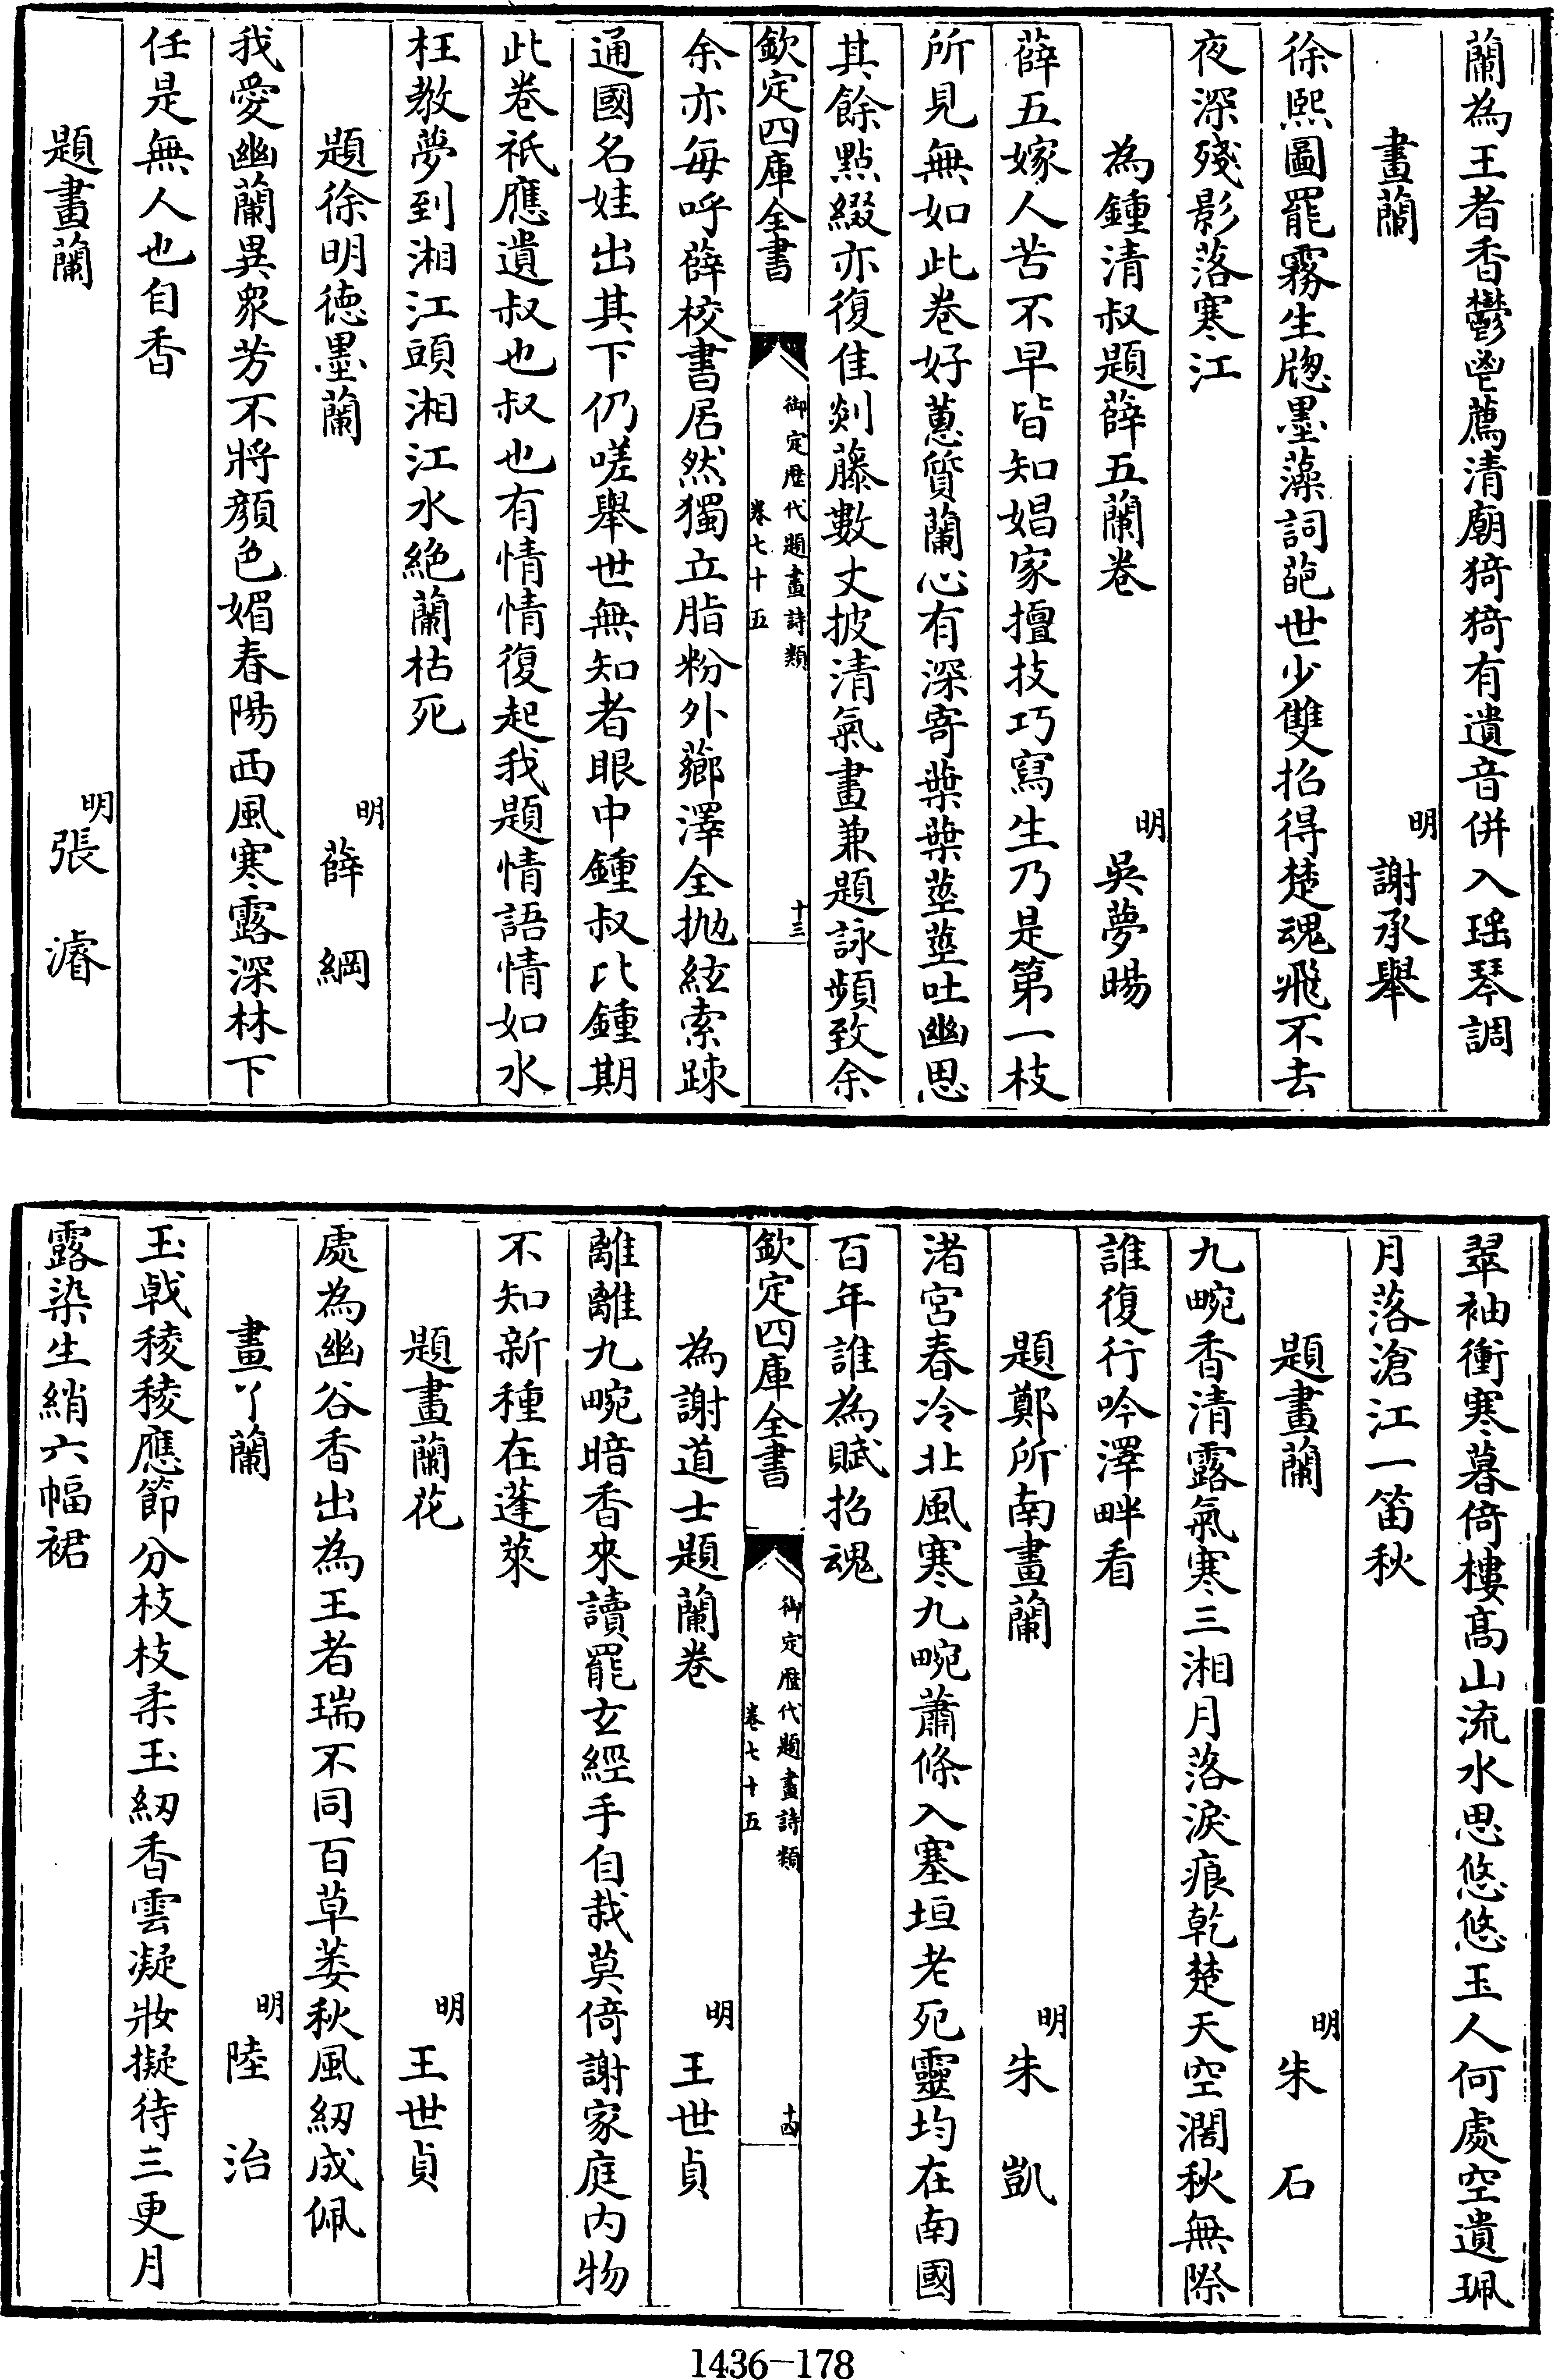 蘭為王者香鬱鬯薦清廟猗猗有遺音併入瑶琴調
畫蘭 明 謝承舉
徐熙圖罷霧生牕墨藻詞葩世少雙招得楚魂飛不去
夜深殘影落寒江
為鍾清叔題薛五蘭卷 明 吳夢暘
薛五嫁人苦不早皆知娼家擅技巧寫生乃是第一枝
所見無如此卷好蕙質蘭心有深寄葉葉莖莖吐幽思
其餘點綴亦復佳剡藤數丈披清氣畫兼題詠頻致余
欽定四庫全書 御定歷代題畫詩類 卷七十五 十三
余亦每呼薛校書居然獨立脂粉外薌澤全拋絃索踈
通國名娃出其下仍嗟舉世無知者眼中鍾叔比鍾期
此卷祇應遺叔也叔也有情情復起我題情語情如水
枉教夢到湘江頭湘江水絶蘭枯死
題徐明徳墨蘭 明 薛綱
我愛幽蘭異衆芳不將顔色媚春陽西風寒露深林下
任是無人也自香
題畫蘭 明 張濬
翠袖衝寒暮倚樓髙山流水思悠悠玉人何處空遺珮
月落滄江一笛秋
題畫蘭 明 朱石
九畹香清露氣寒三湘月落淚痕乾楚天空濶秋無際
誰復行吟澤畔看
題鄭所南畫蘭 明 朱凱
渚宮春冷北風寒九畹蕭條入塞垣老死靈均在南國
百年誰為賦招魂
欽定四庫全書 御定歷代題畫詩類 卷七十五 十四
為謝道士題蘭卷 明 王世貞
離離九畹暗香來讀罷玄經手自栽莫倚謝家庭內物
不知新種在蓬萊
題畫蘭花 明 王世貞
處為幽谷香出為王者瑞不同百草萎秋風紉成佩
畫丫蘭 明 陸治
玉戟稜稜應節分枝枝柔玉紉香雲凝妝擬待三更月
露染生綃六幅裙
1436-178